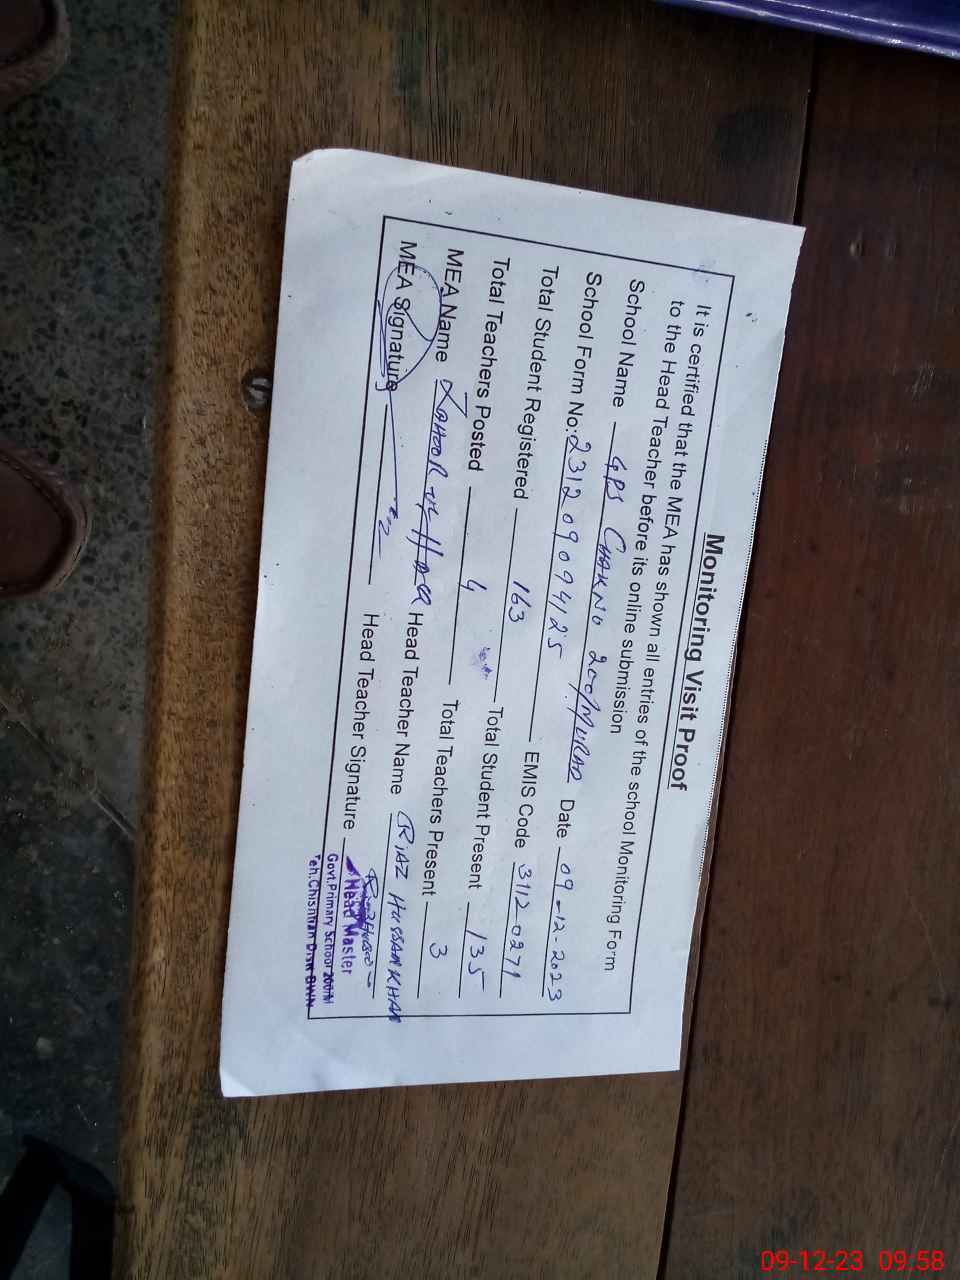 Monitoring Visit Proof
It is certified that the MEA has shown all entries of the school Monitoring Form
to the Head Teacher before its online submission
School Name GPS CHAKNO 200/MURAD Date 09-12-2023
School Form No: 231209094125 EMIS Code 31120271
Total Student Registered 163 Total Student Present 135
Total Teachers Posted 4 Total Teachers Present 3
MEA Name ZAHOOR UL HAQ Head Teacher Name RIAZ HUSSAN KHAN
MEA Signature Head Teacher Signature
Head Master
Govt.Primary School 200/M
Teh.Chishtian Distt BWN
09-12-23 09:58